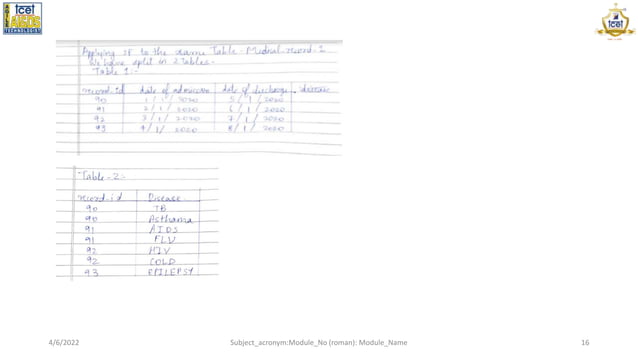 tcet
AI&DS
TECHNOLOGIST
tcet
Applying 1F to the same Table - Medical-record-1
We have split in 2 Tables.
Table 1:-
record-id date of admission date of discharge disease
90 1/1/2020 5/1/2020
91 2/1/2020 6/1/2020
92 3/1/2020 7/1/2020
93 4/1/2020 8/1/2020
Table-2:-
record-id Disease
90 TB
90 Asthama
91 AIDS
91 FLU
92 HIV
92 COLD
93 EPILEPSY
4/6/2022 Subject_acronym:Module_No (roman): Module_Name 16